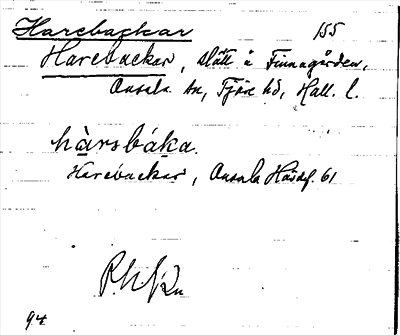 Harebackar 155
Harebackar, slätt å Finnagården,
Onsala sn, Fjäre hd, Hall. l.
hàrsbáka.
Harebackar, Onsala Hdsbf. 61
94